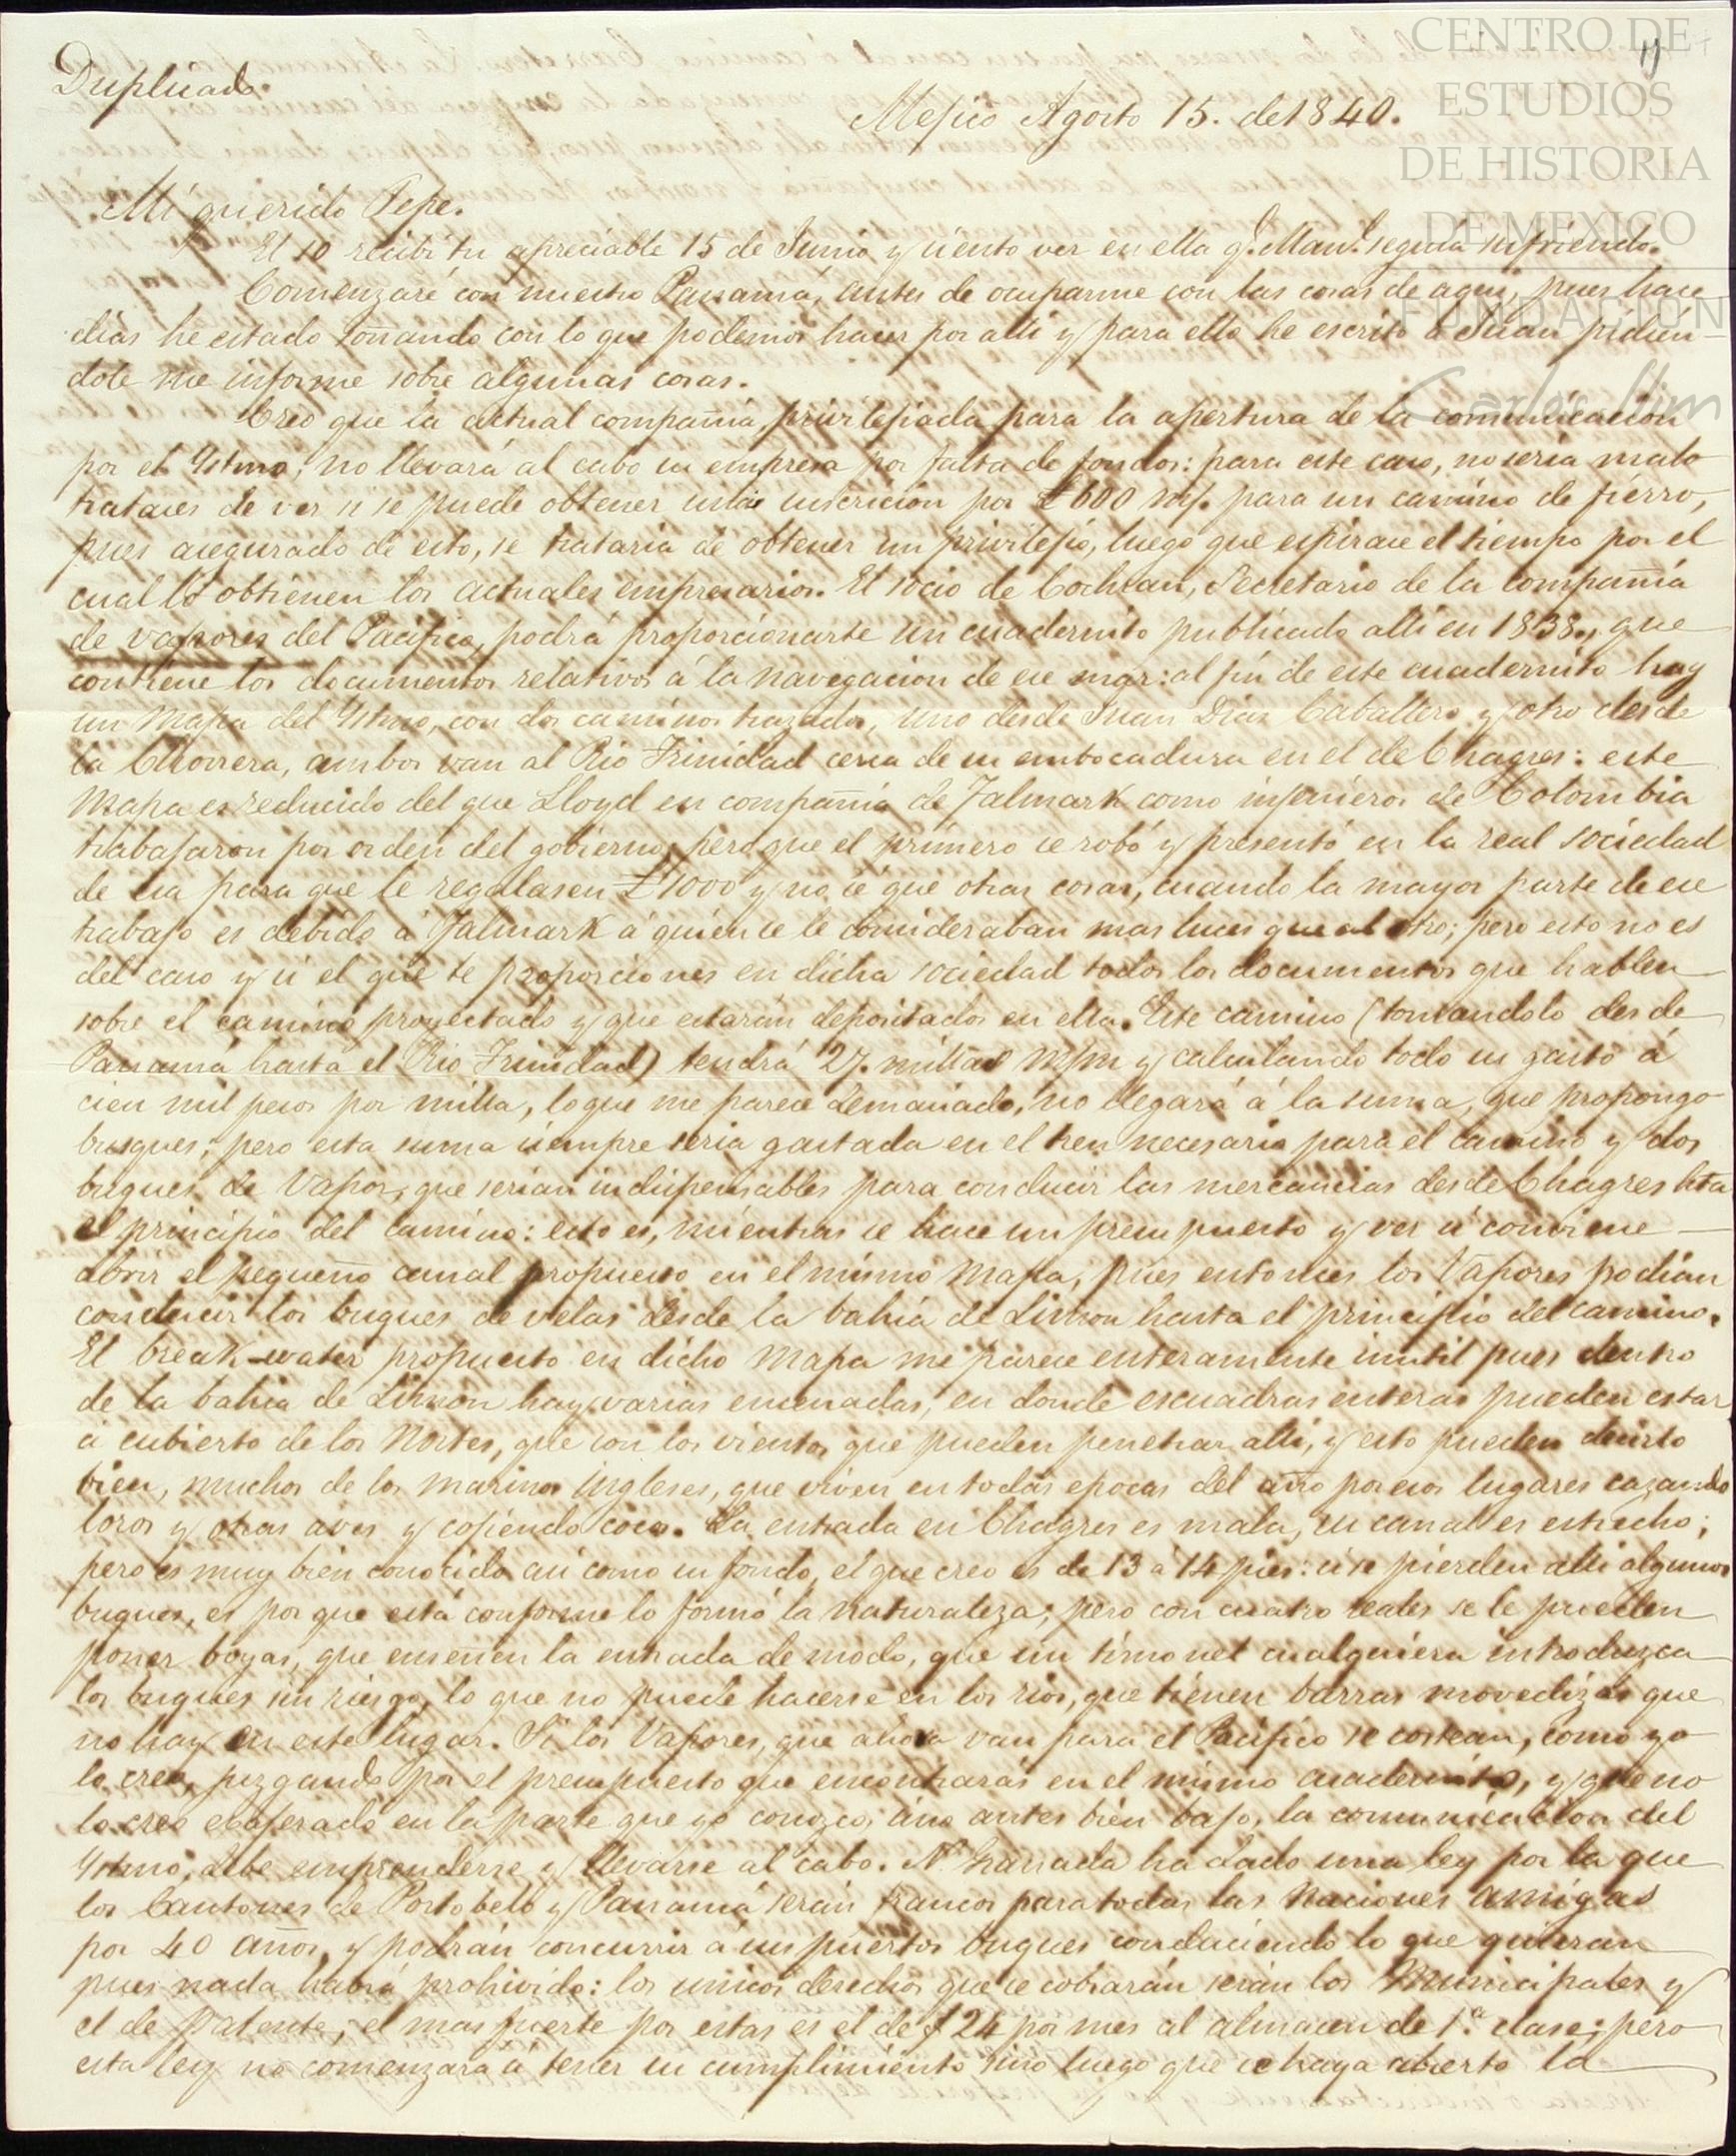 CENTRO DE
ESTUDIOS
DE HISTORIA
DE MÉXICO
FUNDACIÓN
Carlos Slim
Duplicado.
Mejico Agosto 15. de 1840.
Mi querido Pepe.
El 10 recibi tu apreciable 15 de Junio y siento ver en ella q. Man.l seguia sufriendo.
Comenzaré con nuestro Panamá, antes de ocuparme con las cosas de aqui, pues hace
dias he estado soñando con lo que podemos hacer por alli y para ello he escrito a Juan pidien-
dole me informe sobre algunas cosas.
Creo que la actual compañia, privilejiada para la apertura de la comunicacion
por el Ystmo, no llevará al cabo su empresa por falta de fondos: para este caso, no seria malo
tratases de ver si se puede obtener una suscricion por £600 m/. para un camino de fierro,
pues asegurado de esto, se trataria de obtener un privilejio, luego que espirase el tiempo por el
cual lo obtienen los actuales empresarios. El socio de Cochran, Secretario de la compañia
de vapores del Pacifico, podrá proporcionarte un cuadernito publicado alli en 1838., que
contiene los documentos relativos á la navegacion de ese mar: al fin de este cuadernito hay
un Mapa del Ystmo, con dos caminos trazados, uno desde Juan Dias Caballero y otro desde
la Chorrera, ambos van al Rio Trinidad cerca de su embocadura en el de Chagres: este
Mapa es reducido del que Lloyd en compañia de Falmark como injenieros de Colombia
trabajaron por orden del gobierno, pero que el primero se robó y presentó en la real sociedad
de esa para que le regalasen £1000 y no sé que otras cosas, cuando la mayor parte de ese
trabajo es debido á Falmark á quien se le consideraban mas luces que al otro; pero esto no es
del caso y si el que te proporciones en dicha sociedad todos los documentos que hablen
sobre el camino proyectado y que estarán depositados en ella. Este camino (tomandolo desde
Panamá hasta el Rio Trinidad) tendrá 27. millas m/m y calculando todo su gasto á
cien mil pesos por milla, lo que me parece demasiado, no llegará á la suma, que propongo
busques; pero esta suma siempre seria gastada en el tren necesario para el camino y dos
buques de Vapor, que serian indispensables para conducir las mercancias desde Chagres hta
el principio del camino: esto es, mientras se hace un presupuesto y ver si conviene
abrir el pequeño canal propuesto en el mismo Mapa, pues entonces los Vapores podian
conducir los buques de velas desde la bahia de Limon hasta el principio del camino.
El break-water propuesto en dicho Mapa me parece enteramente inutil pues dentro
de la bahia de Limon hay varias ensenadas, en donde escuadras enteras pueden estar
á cubierto de los Nortes, que son los vientos que pueden penetrar alli, y esto pueden decirlo
bien, muchos de los marinos ingleses, que viven en todas epocas del año por esos lugares cazando
loros y otras aves y cojiendo cocos. La entrada en Chagres es mala, su canal es estrecho;
pero es muy bien conocido asi como su fondo, el que creo es de 13 á 14 pies: si se pierden alli algunos
buques, es por que está conforme lo formó la naturaleza; pero con cuatro reales se le pueden
poner boyas, que enseñen la entrada de modo, que un timonel cualquiera introduzca
los buques sin riesgo, lo que no puede hacerse en los rios, que tienen barras movedizas que
no hay en este lugar. Si los Vapores, que ahora van para el Pacifico se costean, como yo
lo creo, juzgando por el presupuesto que encontrarás en el mismo cuadernito, y que no
lo creo exajerado en la parte que yo conozco, sino antes bien bajo, la comunicacion del
Ystmo, debe emprenderse y llevarse al cabo. N. Granada ha dado una ley por la que
los Cantones de Portobelo y Panamá serán francos para todas las Naciones amigas
por 40 años, y podrán concurrir á sus puertos buques conduciendo lo que quieran
pues nada habrá prohivido: los unicos derechos que se cobrarán serán los Municipales y
el de Patente; el mas fuerte por estas es el de $24 por mes al almacen de 1.ª clase; pero
esta ley no comenzará á tener su cumplimiento sino luego que se haya abierto la